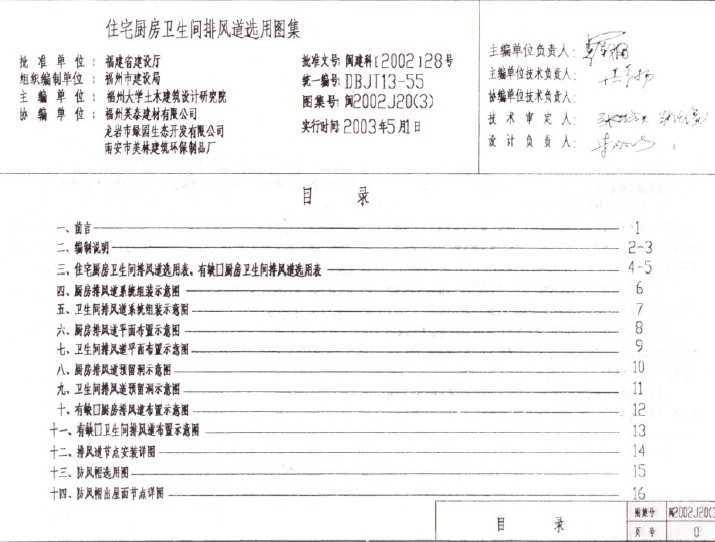 住宅厨房卫生间排风道选用图集
批准单位：福建省建设厅
组织编制单位：福州市建设局
主编单位：福州大学土木建筑设计研究院
协编单位：福州英泰建材有限公司
龙岩市绿园生态开发有限公司
南安市美林建筑环保制品厂
批准文号：闽建科[2002]28号
统一编号：DBJT13-55
图集号：闽2002J20(3)
实行时间：2003年5月1日
主编单位负责人：
主编单位技术负责人：
协编单位技术负责人：
技术审定人：
设计负责人：
目 录
一、前言 1
二、编制说明 2-3
三、住宅厨房卫生间排风道选用表、有缺口厨房卫生间排风道选用表 4-5
四、厨房排风道系统组装示意图 6
五、卫生间排风道系统组装示意图 7
六、厨房排风道平面布置示意图 8
七、卫生间排风道平面布置示意图 9
八、厨房排风道预留洞示意图 10
九、卫生间排风道预留洞示意图 11
十、有缺口厨房排风道布置示意图 12
十一、有缺口卫生间排风道布置示意图 13
十二、排风道节点安装详图 14
十三、防风帽选用图 15
十四、防风帽出屋面节点详图 16
目 录
图集号 闽2002J20(3
页号 0